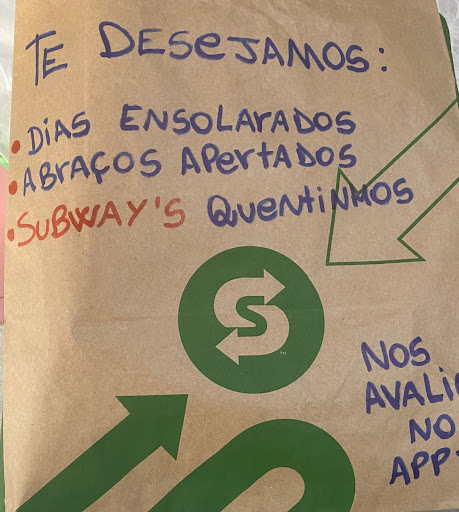 TE DESEJAMOS:
• DIAS ENSOLARADOS
• ABRAÇOS APERTADOS
• SUBWAY'S QUENTINHOS
S
NOS
AVALI
NO
APP